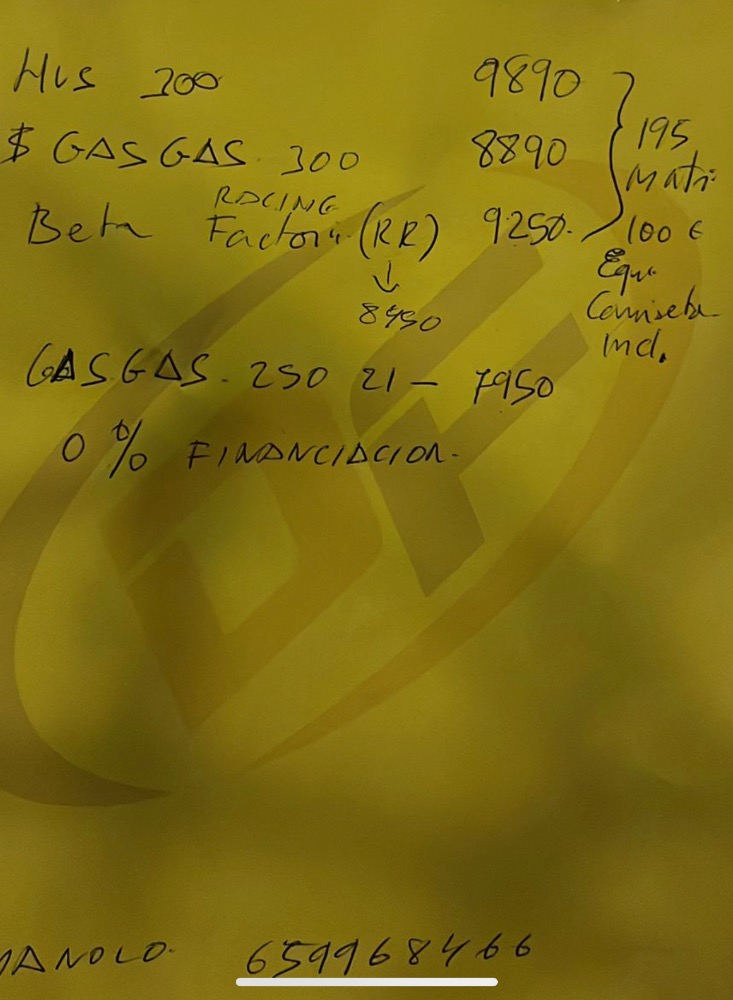 Hus 300 9890
$ GAS GAS. 300 8890
195
Matr.
RACING
Beta Factory (RR) 9250.
100 €
↓
8450
Equi.
Camiseta
incl.
GAS GAS. 250 21 – 7950
0% FINANCIACION.
DF
MANOLO. 659968466